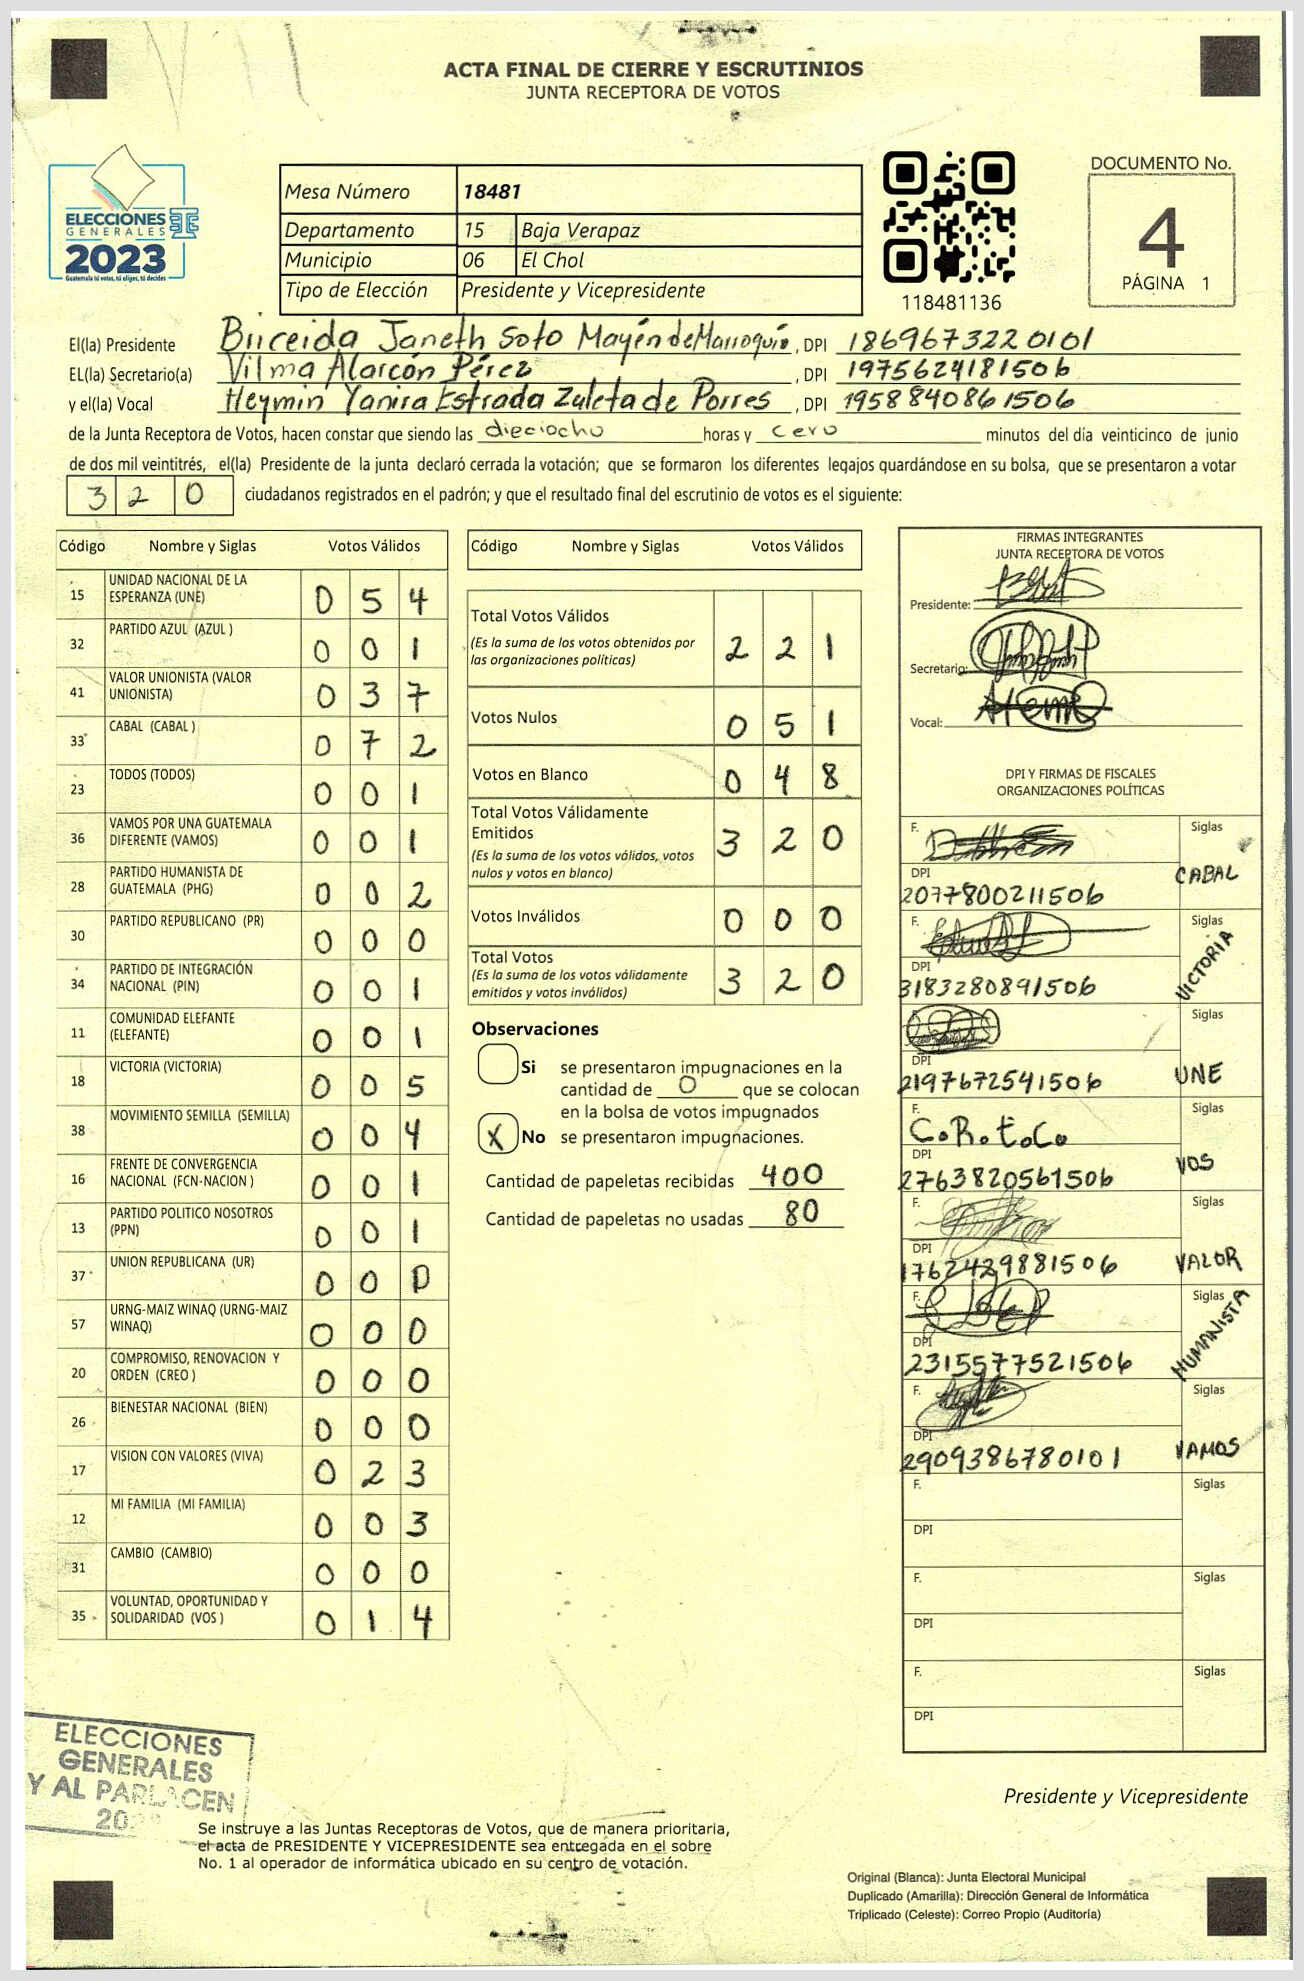 ACTA FINAL DE CIERRE Y ESCRUTINIOS
JUNTA RECEPTORA DE VOTOS
ELECCIONES
GENERALES
2023
Guatemala tú votas, tú eliges, tú decides
Mesa Número 18481
Departamento 15 Baja Verapaz
Municipio 06 El Chol
Tipo de Elección Presidente y Vicepresidente
118481136
DOCUMENTO No.
4
PÁGINA 1
El(la) Presidente Briceida Janeth Soto Mayén de Marroquín, DPI 1869673220101
EL(la) Secretario(a) Vilma Alarcón Pérez, DPI 1975624181506
y el(la) Vocal Heymin Yanira Estrada Zuleta de Porres, DPI 1958840861506
de la Junta Receptora de Votos, hacen constar que siendo las dieciocho horas y cero minutos del día veinticinco de junio
de dos mil veintitrés, el(la) Presidente de la junta declaró cerrada la votación; que se formaron los diferentes legajos guardándose en su bolsa, que se presentaron a votar
320 ciudadanos registrados en el padrón; y que el resultado final del escrutinio de votos es el siguiente:
Código Nombre y Siglas Votos Válidos
15 UNIDAD NACIONAL DE LA ESPERANZA (UNE) 054
32 PARTIDO AZUL (AZUL ) 001
41 VALOR UNIONISTA (VALOR UNIONISTA) 037
33 CABAL (CABAL ) 072
23 TODOS (TODOS) 001
36 VAMOS POR UNA GUATEMALA DIFERENTE (VAMOS) 001
28 PARTIDO HUMANISTA DE GUATEMALA (PHG) 002
30 PARTIDO REPUBLICANO (PR) 000
34 PARTIDO DE INTEGRACIÓN NACIONAL (PIN) 001
11 COMUNIDAD ELEFANTE (ELEFANTE) 001
18 VICTORIA (VICTORIA) 005
38 MOVIMIENTO SEMILLA (SEMILLA) 004
16 FRENTE DE CONVERGENCIA NACIONAL (FCN-NACION ) 001
13 PARTIDO POLITICO NOSOTROS (PPN) 001
37 UNION REPUBLICANA (UR) 000
57 URNG-MAIZ WINAQ (URNG-MAIZ WINAQ) 000
20 COMPROMISO, RENOVACION Y ORDEN (CREO ) 000
26 BIENESTAR NACIONAL (BIEN) 000
17 VISION CON VALORES (VIVA) 023
12 MI FAMILIA (MI FAMILIA) 003
31 CAMBIO (CAMBIO) 000
35 VOLUNTAD, OPORTUNIDAD Y SOLIDARIDAD (VOS ) 014
Código Nombre y Siglas Votos Válidos
Total Votos Válidos 221
(Es la suma de los votos obtenidos por
las organizaciones políticas)
Votos Nulos 051
Votos en Blanco 048
Total Votos Válidamente
Emitidos 320
(Es la suma de los votos válidos, votos
nulos y votos en blanco)
Votos Inválidos 000
Total Votos 320
(Es la suma de los votos válidamente
emitidos y votos inválidos)
Observaciones
Si se presentaron impugnaciones en la
cantidad de 0 que se colocan
en la bolsa de votos impugnados
X No se presentaron impugnaciones.
Cantidad de papeletas recibidas 400
Cantidad de papeletas no usadas 80
FIRMAS INTEGRANTES
JUNTA RECEPTORA DE VOTOS
Presidente:
Secretario:
Vocal:
DPI Y FIRMAS DE FISCALES
ORGANIZACIONES POLÍTICAS
F. Siglas
DPI CABAL
2077800211506
F. Siglas
DPI VICTORIA
3183280891506
F. Siglas
DPI UNE
2197672541506
F. Siglas
C.R.t.Co
DPI VOS
2763820561506
F. Siglas
DPI VALOR
1762429881506
F. Siglas
DPI HUMANISTA
2315577521506
F. Siglas
DPI VAMOS
2909386780101
F. Siglas
DPI
F. Siglas
DPI
F. Siglas
DPI
ELECCIONES
GENERALES
Y AL PARLACEN
Presidente y Vicepresidente
Se instruye a las Juntas Receptoras de Votos, que de manera prioritaria,
el acta de PRESIDENTE Y VICEPRESIDENTE sea entregada en el sobre
No. 1 al operador de informática ubicado en su centro de votación.
Original (Blanca): Junta Electoral Municipal
Duplicado (Amarilla): Dirección General de Informática
Triplicado (Celeste): Correo Propio (Auditoría)